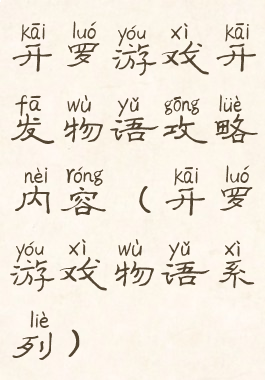 kāi luó yóu xì kāi
开罗游戏开
fā wù yǔ gōng lüè
发物语攻略
nèi róng kāi luó
内容（开罗
yóu xì wù yǔ xì
游戏物语系
liè
列）